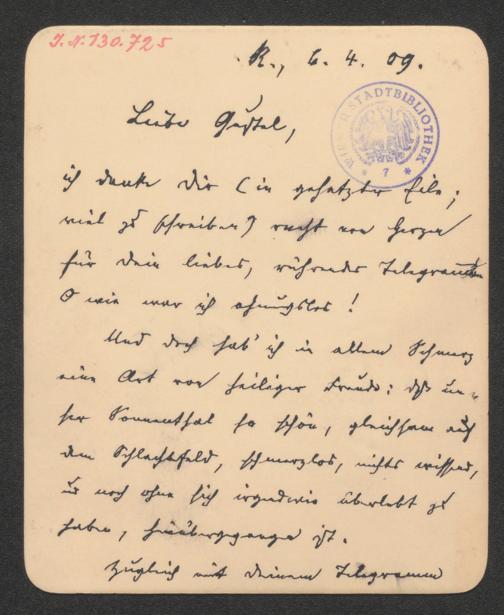 J.N. 130.725
R., 6. 4. 09.
WIENER STADTBIBLIOTHEK
* 7 *
Liebe Gustel,
ich danke dir (in gehetzter Eile;
viel zu schreiben) recht von Herzen
für dein liebes, rührendes Telegramm
O wie war ich ahnungslos!
Und doch hab' ich in allem Schmerz
eine Art von heiliger Freude: daß un-
ser Sonnenthal so schön, gleichsam auf
dem Schlachtfeld, schmerzlos, nichts wissend,
u noch ohne sich irgendwie überlebt zu
haben, hinübergegangen ist.
Zugleich mit deinem Telegramm